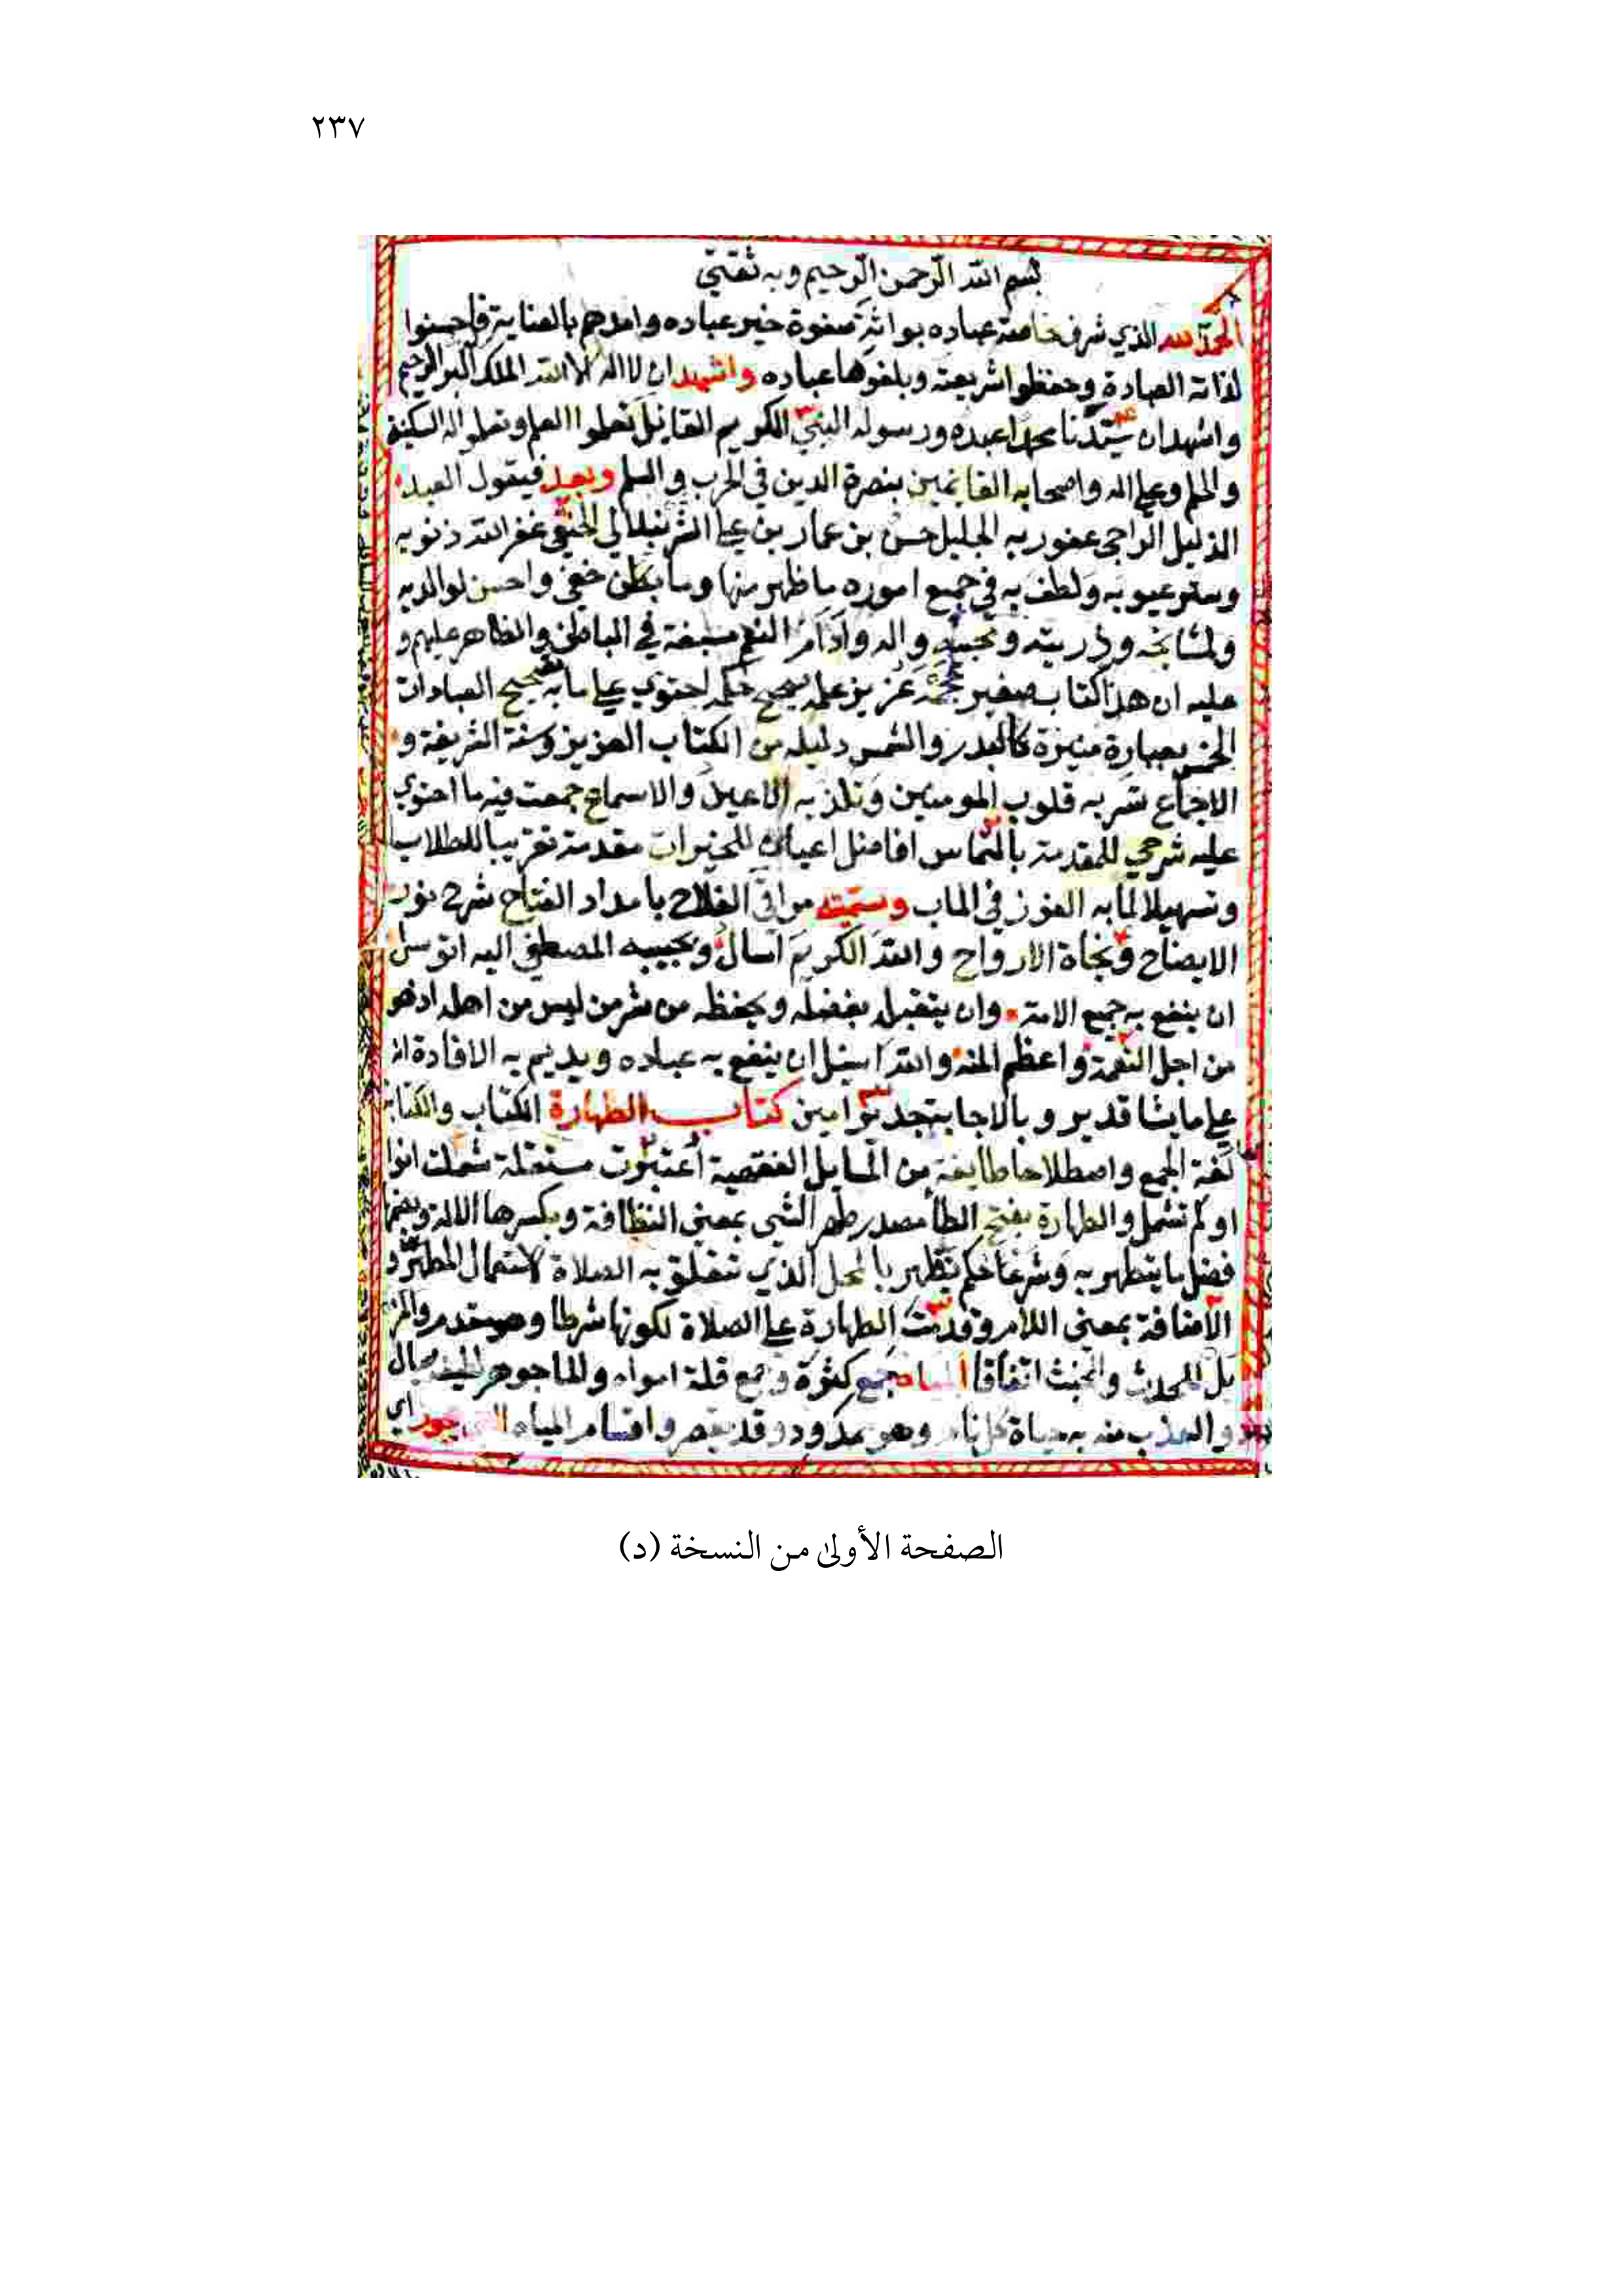 ٢٣٧
بسم الله الرحمن الرحيم وبه ثقتي
الحمد لله الذي شرف خاصة عباده بوراثة صفوة خير عباده وامدهم بالعناية فاحسنوا
لذاته العبادة وحفظوا شريعته وبلغوها عباده واشهد ان لا اله الا الله الملك البر الرحيم
واشهد ان سيدنا محمدا عبده ورسوله النبي الكريم القايل تعلموا العلم وتعلموا له السكينة
والحلم وعلي اله واصحابه القايمين بنصرة الدين في الحرب والسلم وبعد فيقول العبد
الذليل الراجي عفو ربه الجليل حسن بن عمار بن علي الشرنبلالي الحنفي غفر الله ذنوبه
وستر عيوبه ولطف به في جميع اموره ما ظهر منها وما بطن خفي واحسن لوالديه
ولمشايخه وذريته ومحبيه واليه وادام النعم مسبغة في الباطن والظاهر عليهم و
عليه ان هذا كتاب صغير حجمه غزير علمه صحيح حكمه احتوي علي ما به تصحيح العبادات
الخمس بعبارة منيرة كالبدر والشمس دليله من الكتاب العزيز وسنة الشريفة و
الاجماع تسر به قلوب المومنين وتلذ به الاعين والاسماع جمعت فيه ما احتوي
عليه شرحي للمقدمة بالتماس افاضل اعيان للخيرات مقدمة تقريبا للطلاب
وتسهيلا لما به الفوز في الماب وسميته مراقي الفلاح بامداد الفتاح شرح نور
الايضاح ونجاة الارواح والله الكريم اسال وبحبيبه المصطفي اليه اتوسل
ان ينفع به جميع الامة وان يتقبل بفضله ويحفظه من شر من ليس من اهله اذ هو
من اجل النعمة واعظم المنة والله اسيل ان ينفع به عباده ويديم به الافادة انه
علي ما يشا قدير وبالاجابة جدير امين كتاب الطهارة الكتاب والكتابة
لغة الجمع واصطلاحا طايفة من المسايل الفقهية اعتبرت مستقلة شملت انواعا
او لم تشمل والطهارة بفتح الطا مصدر طهر الشي بمعني النظافة وبكسرها الالة وبضمها
فضل ما يتطهر به وشرعا حكم يظهر بالمحل الذي تتعلق به الصلاة لاستعمال المطهر و
الاضافة بمعني اللام وقدمت الطهارة علي الصلاة لكونها شرطا وهو مقدم والمز
يل للحدث والخبث اتفاقا المياه جمع كثرة وجمع قلة امواه والما جوهر لطيف سيال
والعذب منه به حياة كل نام وهو ممدود وقد يقصر واقسام المياه التي يجوز اي
الصفحة الأولىٰ من النسخة (د)